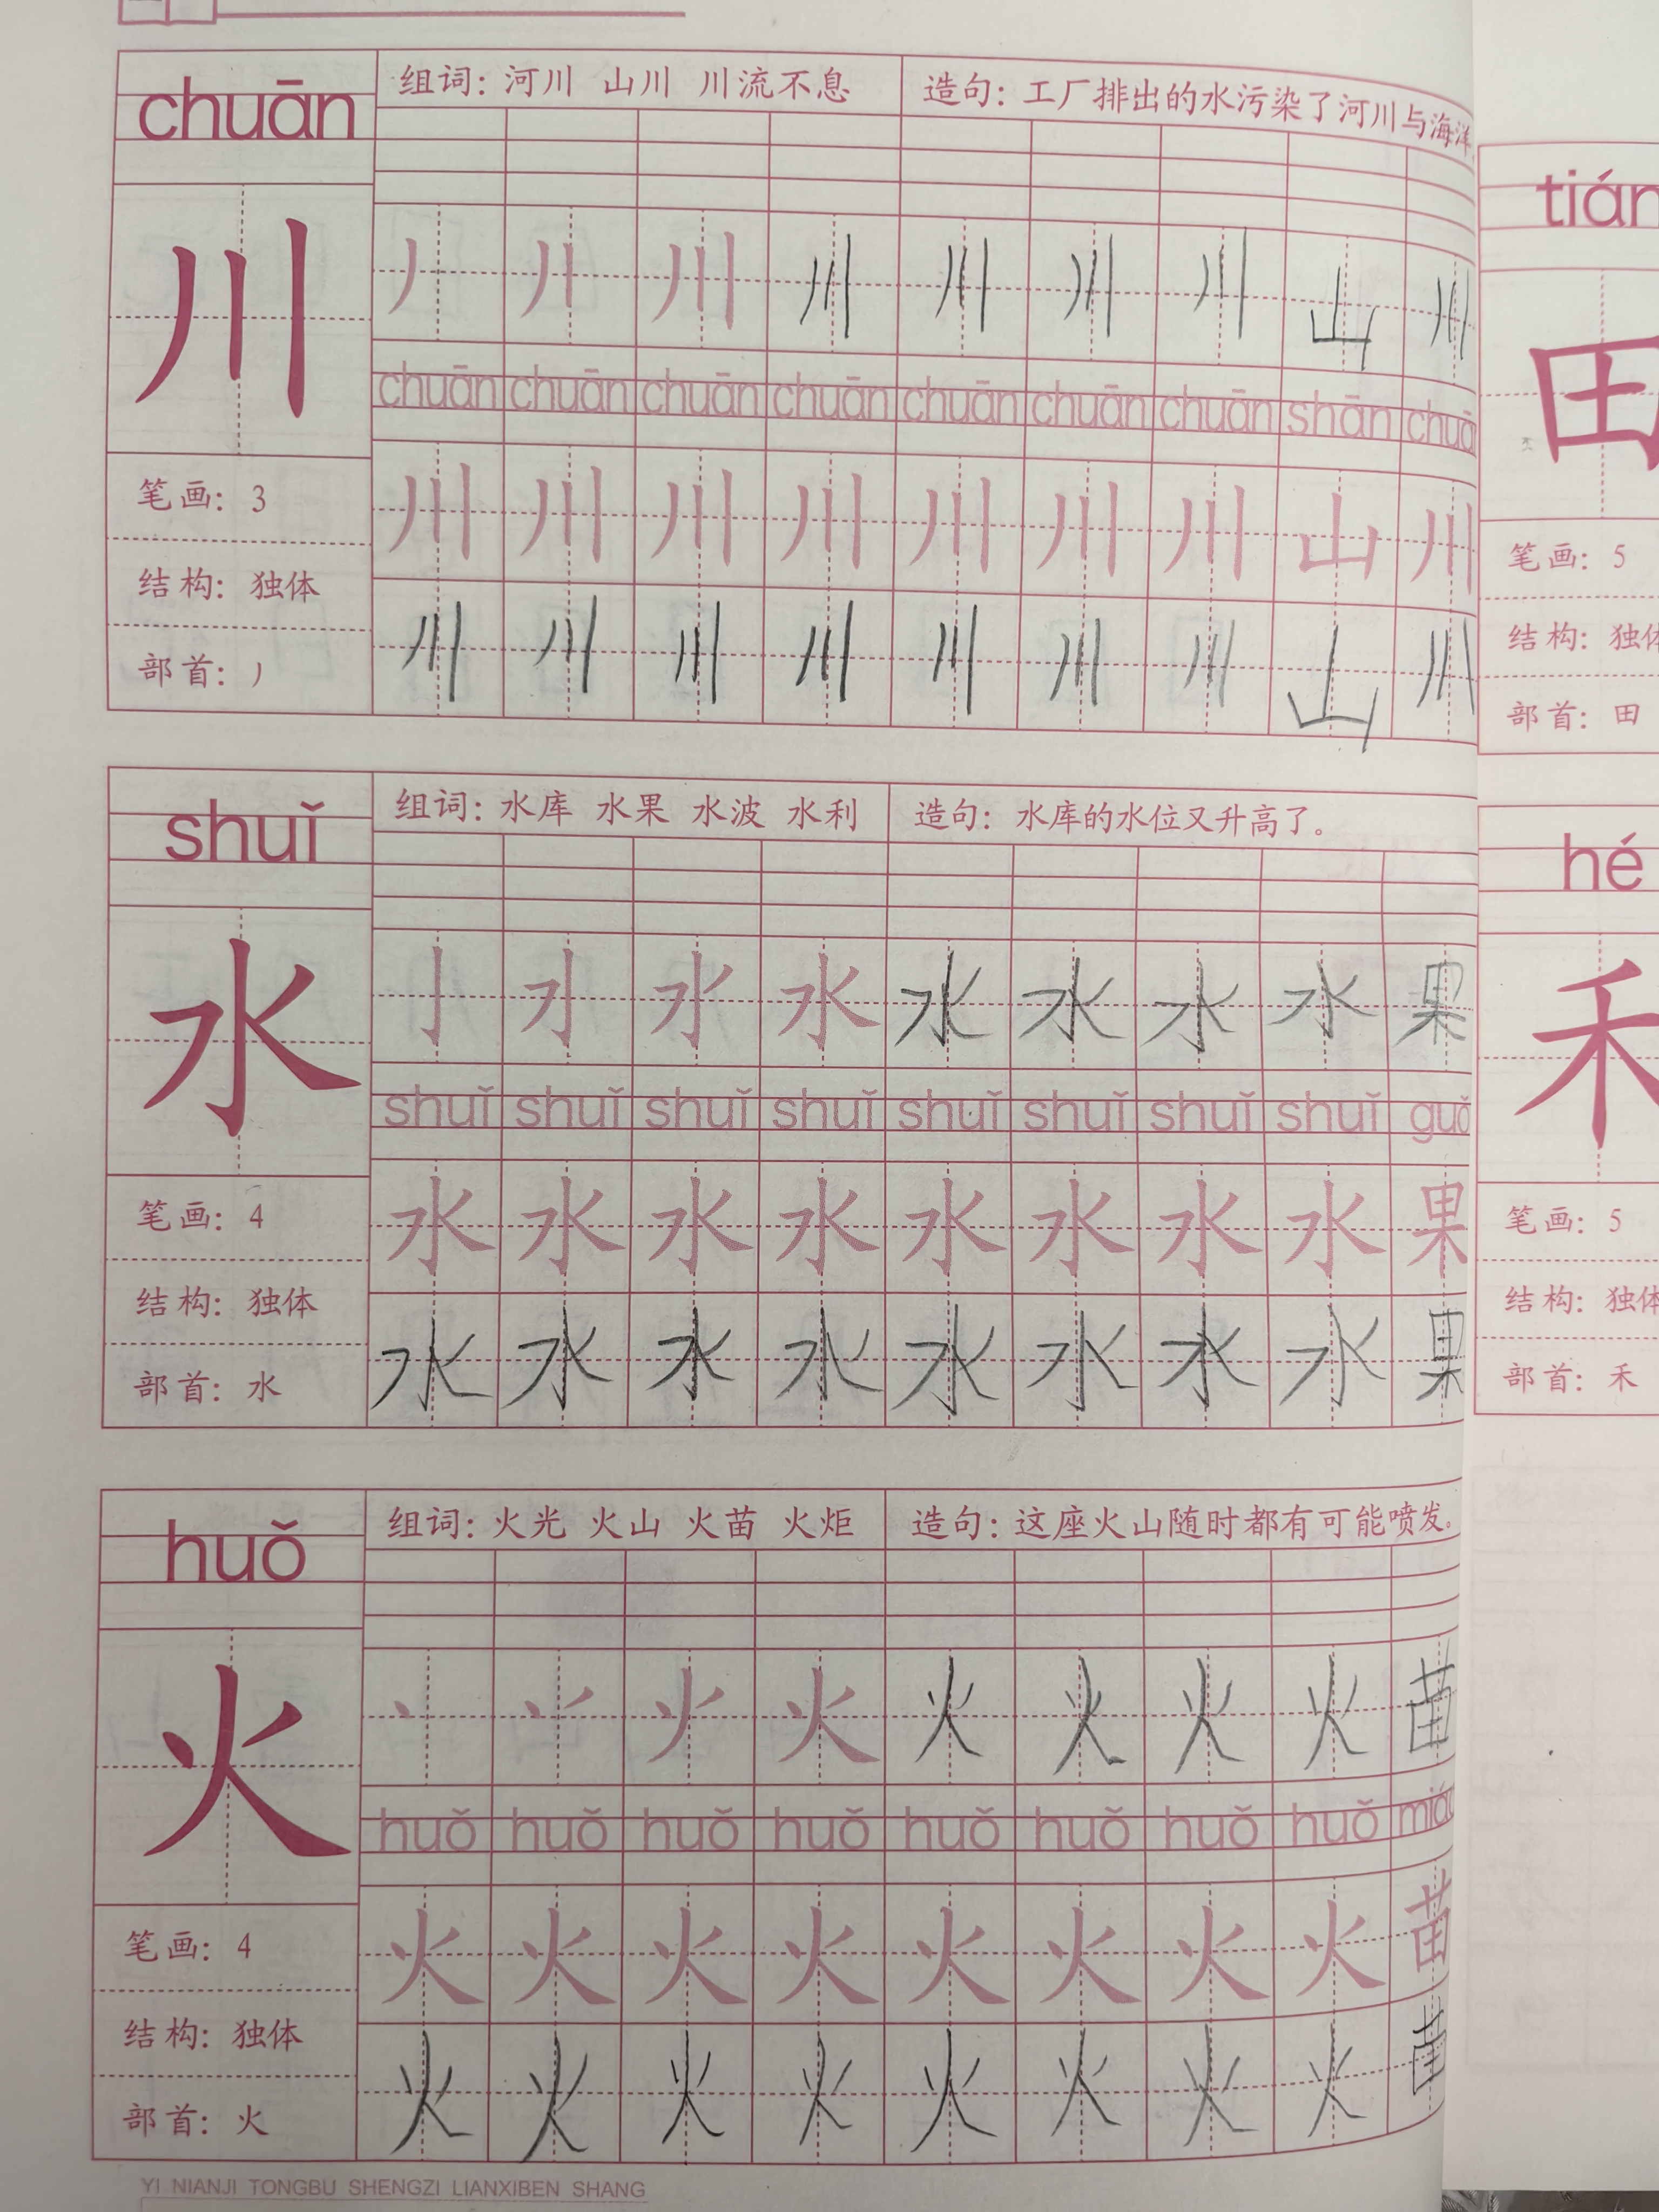 chuān
组词：河川 山川 川流不息
造句：工厂排出的水污染了河川与海洋
川
川 川 川 川 山 川
chuān chuān chuān chuān chuān chuān chuān shān
川 川 川 川 川 川 川 山 川
川 川 川 川 川 川 川 山 川
笔画：3
结构：独体
部首：丿
shuǐ
组词：水库 水果 水波 水利
造句：水库的水位又升高了。
水
水 水 水 水 水 果
shuǐ shuǐ shuǐ shuǐ shuǐ shuǐ shuǐ shuǐ
水 水 水 水 水 水 水 水 果
水 水 水 水 水 水 水 水 果
笔画：4
结构：独体
部首：水
huǒ
组词：火光 火山 火苗 火炬
造句：这座火山随时都有可能喷发。
火
火 火 火 火 火 苗
huǒ huǒ huǒ huǒ huǒ huǒ huǒ huǒ
火 火 火 火 火 火 火 火 苗
火 火 火 火 火 火 火 火 苗
笔画：4
结构：独体
部首：火
YI NIANJI TONGBU SHENGZI LIANXIBEN SHANG
田
笔画：5
结构：独体
部首：田
hé
禾
笔画：5
结构：独体
部首：禾